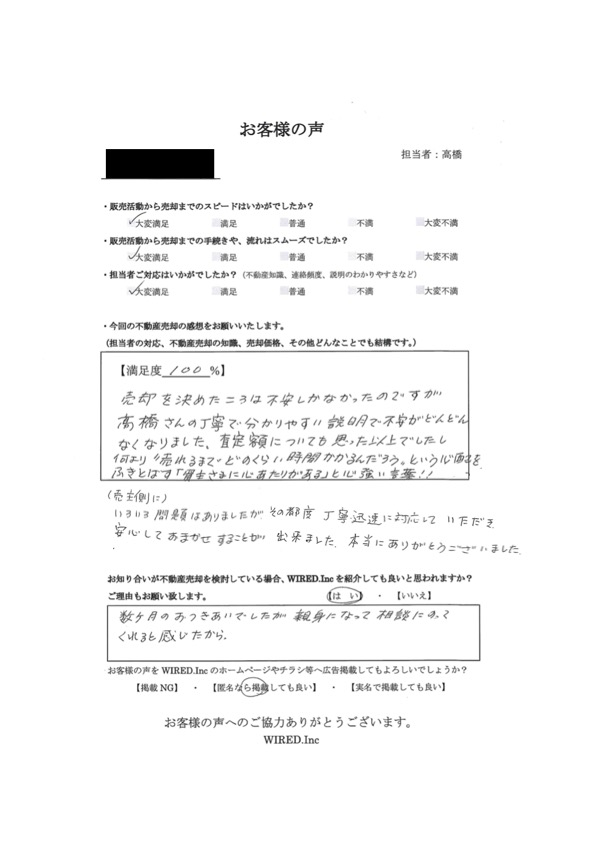 お客様の声
担当者：高橋
・販売活動から売却までのスピードはいかがでしたか？
大変満足 満足 普通 不満 大変不満
・販売活動から売却までの手続きや、流れはスムーズでしたか？
大変満足 満足 普通 不満 大変不満
・担当者ご対応はいかがでしたか？（不動産知識、連絡頻度、説明のわかりやすさなど）
大変満足 満足 普通 不満 大変不満
・今回の不動産売却の感想をお願いいたします。
（担当者の対応、不動産売却の知識、売却価格、その他どんなことでも結構です。）
【満足度 100 %】
売却を決めたころは不安しかなかったのですが
高橋さんの丁寧で分かりやすい説明で不安がどんどん
なくなりました、査定額についても思った以上でしたし
何より"売れるまでどのくらい時間かかるんだろう。という心配を
ふきとばす「買主さまに心あたりがある」と心強い言葉!!
(売主側に)
いろいろ問題はありましたが、その都度 丁寧迅速に対応して いただき
安心して おまかせ することが 出来ました、本当にありがとうございました
お知り合いが不動産売却を検討している場合、WIRED.Incを紹介しても良いと思われますか？
ご理由もお願い致します。 【はい】 ・ 【いいえ】
数ヶ月のおつきあいでしたが 親身になって 相談にのって
くれると感じたから.
お客様の声をWIRED.Incのホームページやチラシ等へ広告掲載してもよろしいでしょうか？
【掲載NG】 ・ 【匿名なら掲載しても良い】 ・ 【実名で掲載しても良い】
お客様の声へのご協力ありがとうございます。
WIRED.Inc